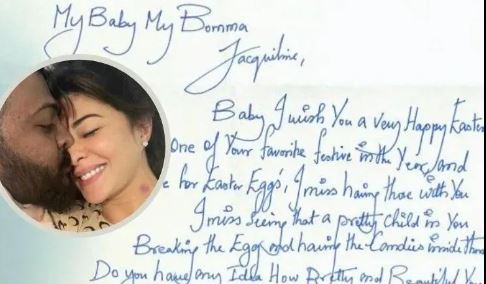 My Baby My Bomma
Jacqueline,
Baby I wish You a very Happy Easter
One of Your favorite festive in the Year, and
e for Easter Eggs', I miss having those with You
I miss Seeing that a pretty child in You
Breaking the Egg and having the Candies inside
Do you have any Idea How Pretty and Beautiful You